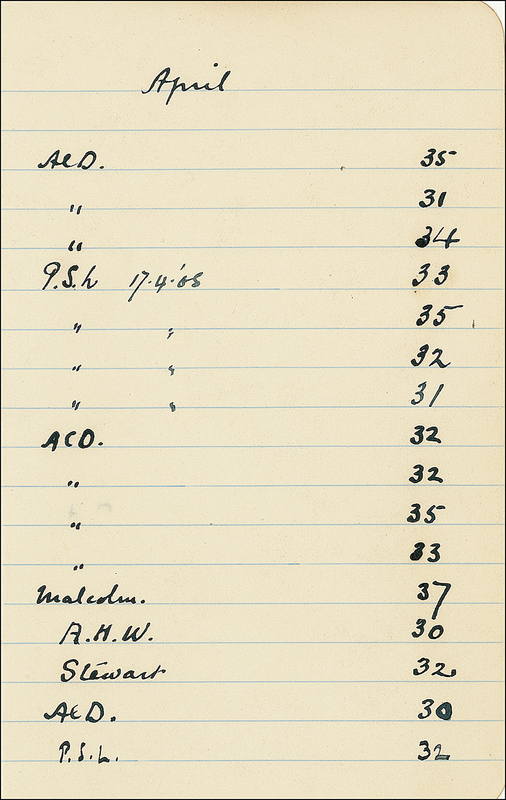 April
ACD. 35
" 31
" 34
P.S.L 17.4.'05 33
" " 35
" " 32
" " 31
ACD. 32
" 32
" 35
" 33
Malcolm. 37
A.H.W. 30
Stewart 32.
ACD. 30
P.S.L. 32